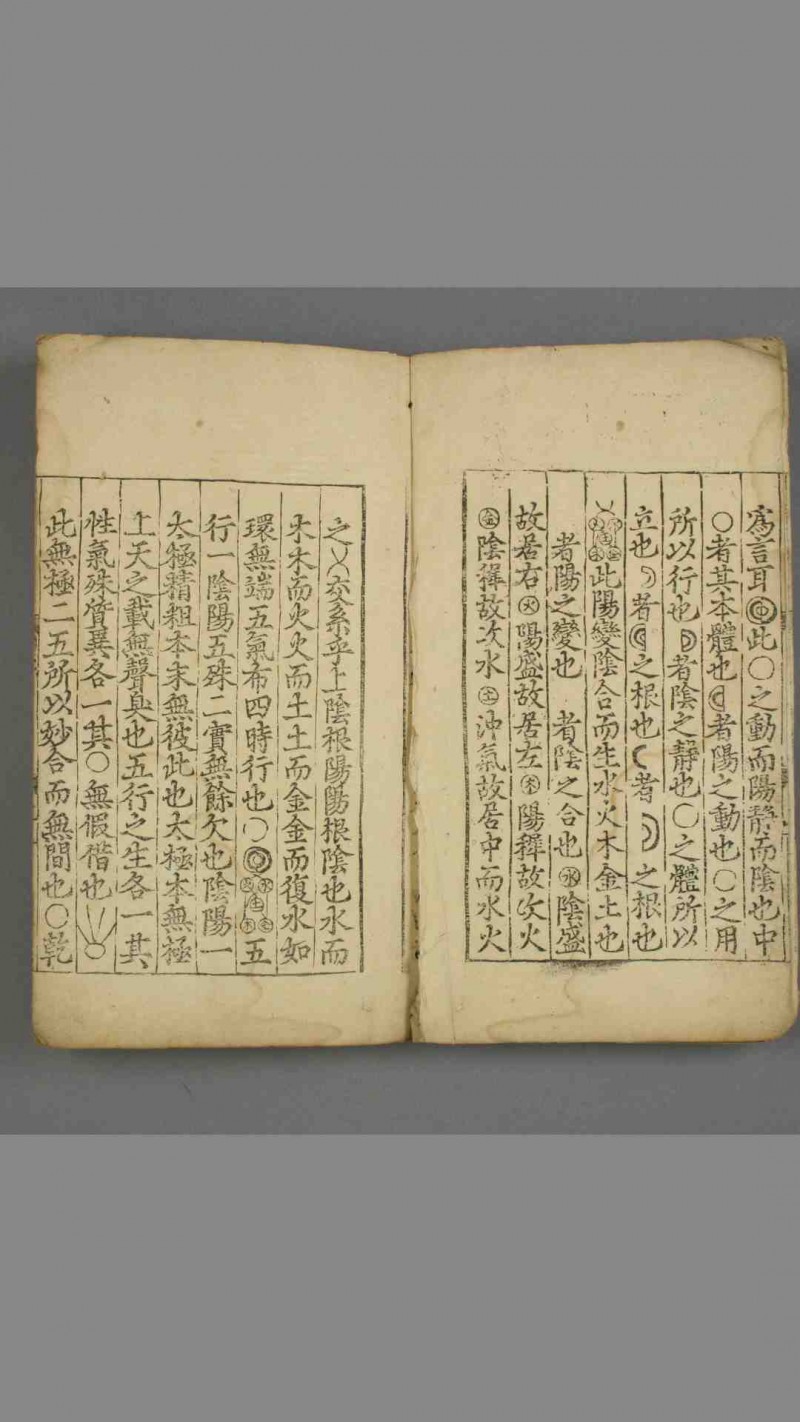 爲言耳此○之動而陽靜而陰也中
○者其本體也者陽之動也○之用
所以行也者陰之靜也○之體所以
立也者之根也者之根也
此陽變陰合而生水火木金土也
者陽之變也 者陰之合也㊌陰盛
故居右㊋陽盛故居左㊍陽穉故次火
㊎陰穉故次水㊏沖氣故居中而水火
之交系乎上陰根陽陽根陰也水而
木木而火火而土土而金金而復水如
環無端五氣布四時行也○五
行一陰陽五殊二實無餘欠也陰陽一
太極精粗本末無彼此也太極本無極
上天之載無聲臭也五行之生各一其
性氣殊質異各一其○無假借也
此無極二五所以妙合而無間也○乾